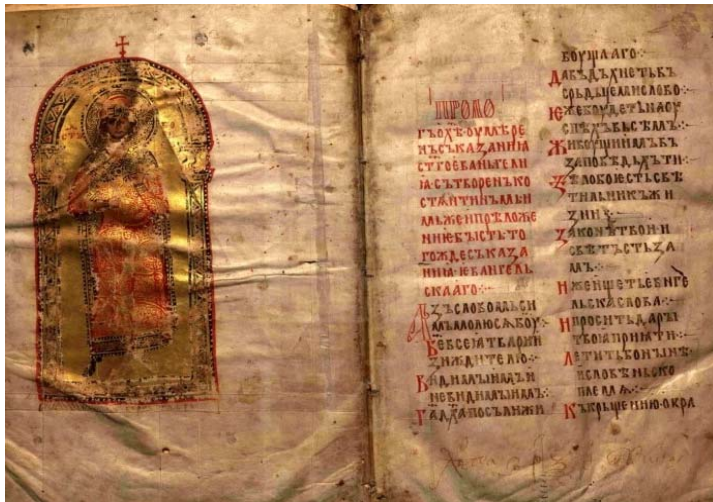 ПРОЛО
ГЪ О Х҃Ѣ ОУМѢРЕ
НЪ СЪКАЗАНИꙖ
СТ҃ГО ЕВАНГЕЛИ
Ꙗ · СЪТВОРЕНЪ КО
СТѦНТИНЪМЬ И
МЬЖЕ И ПРѢЛОЖЕ
НИѤ БЫСТЬ · ТО
ГОЖДЕ СЪКАЗА
НИꙖ ѤВАНГЕЛЬ
СКААГО ⁘
АЗЪ СЛОВОМЬ СИ
МЬ МОЛЮ СѦ БОУ ⁘
Б҃Е ВСЕꙖ ТВАРИ И
ЗИЖДИТЕЛЮ ⁘
ВИДИМЫИМЪ И
НЕВИДИМЫИМЪ ⁘
Г҃А Д҃ХА ПОСЪЛИ ЖИ
ВОУЩАГО ⁘
ДА ВЪДЪХНЕТЬ ВЪ
СРЬДЬЦЕ МИ СЛОВО
ѤЖЕ БОУДЕТЬ НА ОУ
СПѢХЪ ВЬСѢМЪ ⁘
ЖИВОУЩИИМЪ ВЪ
ЗАПОВѢДЬХЪ ТИ ⁘
ЅѢЛО БО ѤСТЬ СВѢ
ТИЛЬНИКЪ ЖИ
ЗНИ ⁘
ЗАКОНЪ ТВОИ
СВѢТЪ СТЬЗА
МЪ ⁘
ИЖЕ ИЩЕТЬ ЕВАНГЕ
ЛЬСКА СЛОВА ⁘
И ПРОСИТЬ ДАРЫ
ТВОꙖ ПРИꙖТИ
ЛЕТИТЬ БО НЫНѢ
И СЛОВѢНЬСКО
ПЛЕМѦ ⁘
КЪ КРЬЩЕНИЮ ОБРА